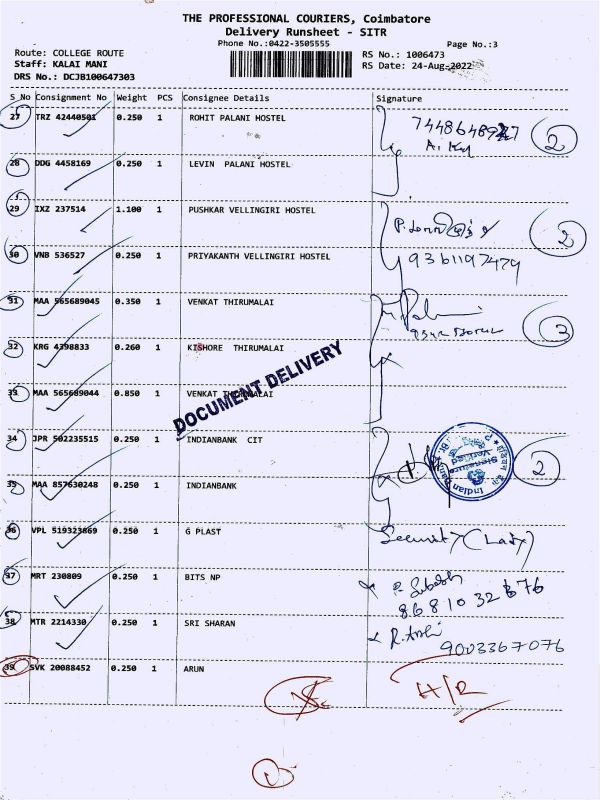 THE PROFESSIONAL COURIERS, Coimbatore
Delivery Runsheet - SITR
Phone No.:0422-3505555
Page No.:3
Route: COLLEGE ROUTE
RS No.: 1006473
Staff: KALAI MANI
RS Date: 24-Aug-2022
DRS No.: DCJB100647303
S_No Consignment No Weight PCS Consignee Details Signature
27 TRZ 42440501 0.250 1 ROHIT PALANI HOSTEL
2
28 DDG 4458169 0.250 1 LEVIN PALANI HOSTEL
29 IXZ 237514 1.100 1 PUSHKAR VELLINGIRI HOSTEL
2
30 VNB 536527 0.250 1 PRIYAKANTH VELLINGIRI HOSTEL
9361197479
31 MAA 565689045 0.350 1 VENKAT THIRUMALAI
3
32 KRG 4398833 0.260 1 KISHORE THIRUMALAI
33 MAA 565689044 0.850 1 VENKAT THIRUMALAI
DOCUMENT DELIVERY
34 JPR 502235515 0.250 1 INDIANBANK CIT
2
35 MAA 857630248 0.250 1 INDIANBANK
36 VPL 519323869 0.250 1 G PLAST Security (Lady)
37 MRT 230809 0.250 1 BITS NP
86810 32676
38 MTR 2214330 0.250 1 SRI SHARAN
9003367076
39 SVK 20088452 0.250 1 ARUN H/R